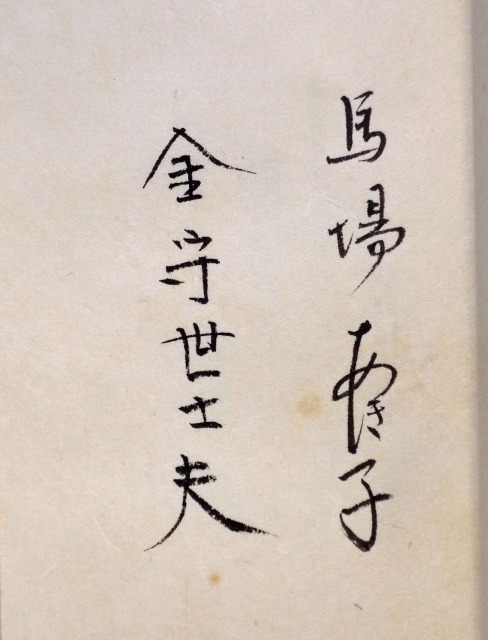 馬場あき子
金守世士夫